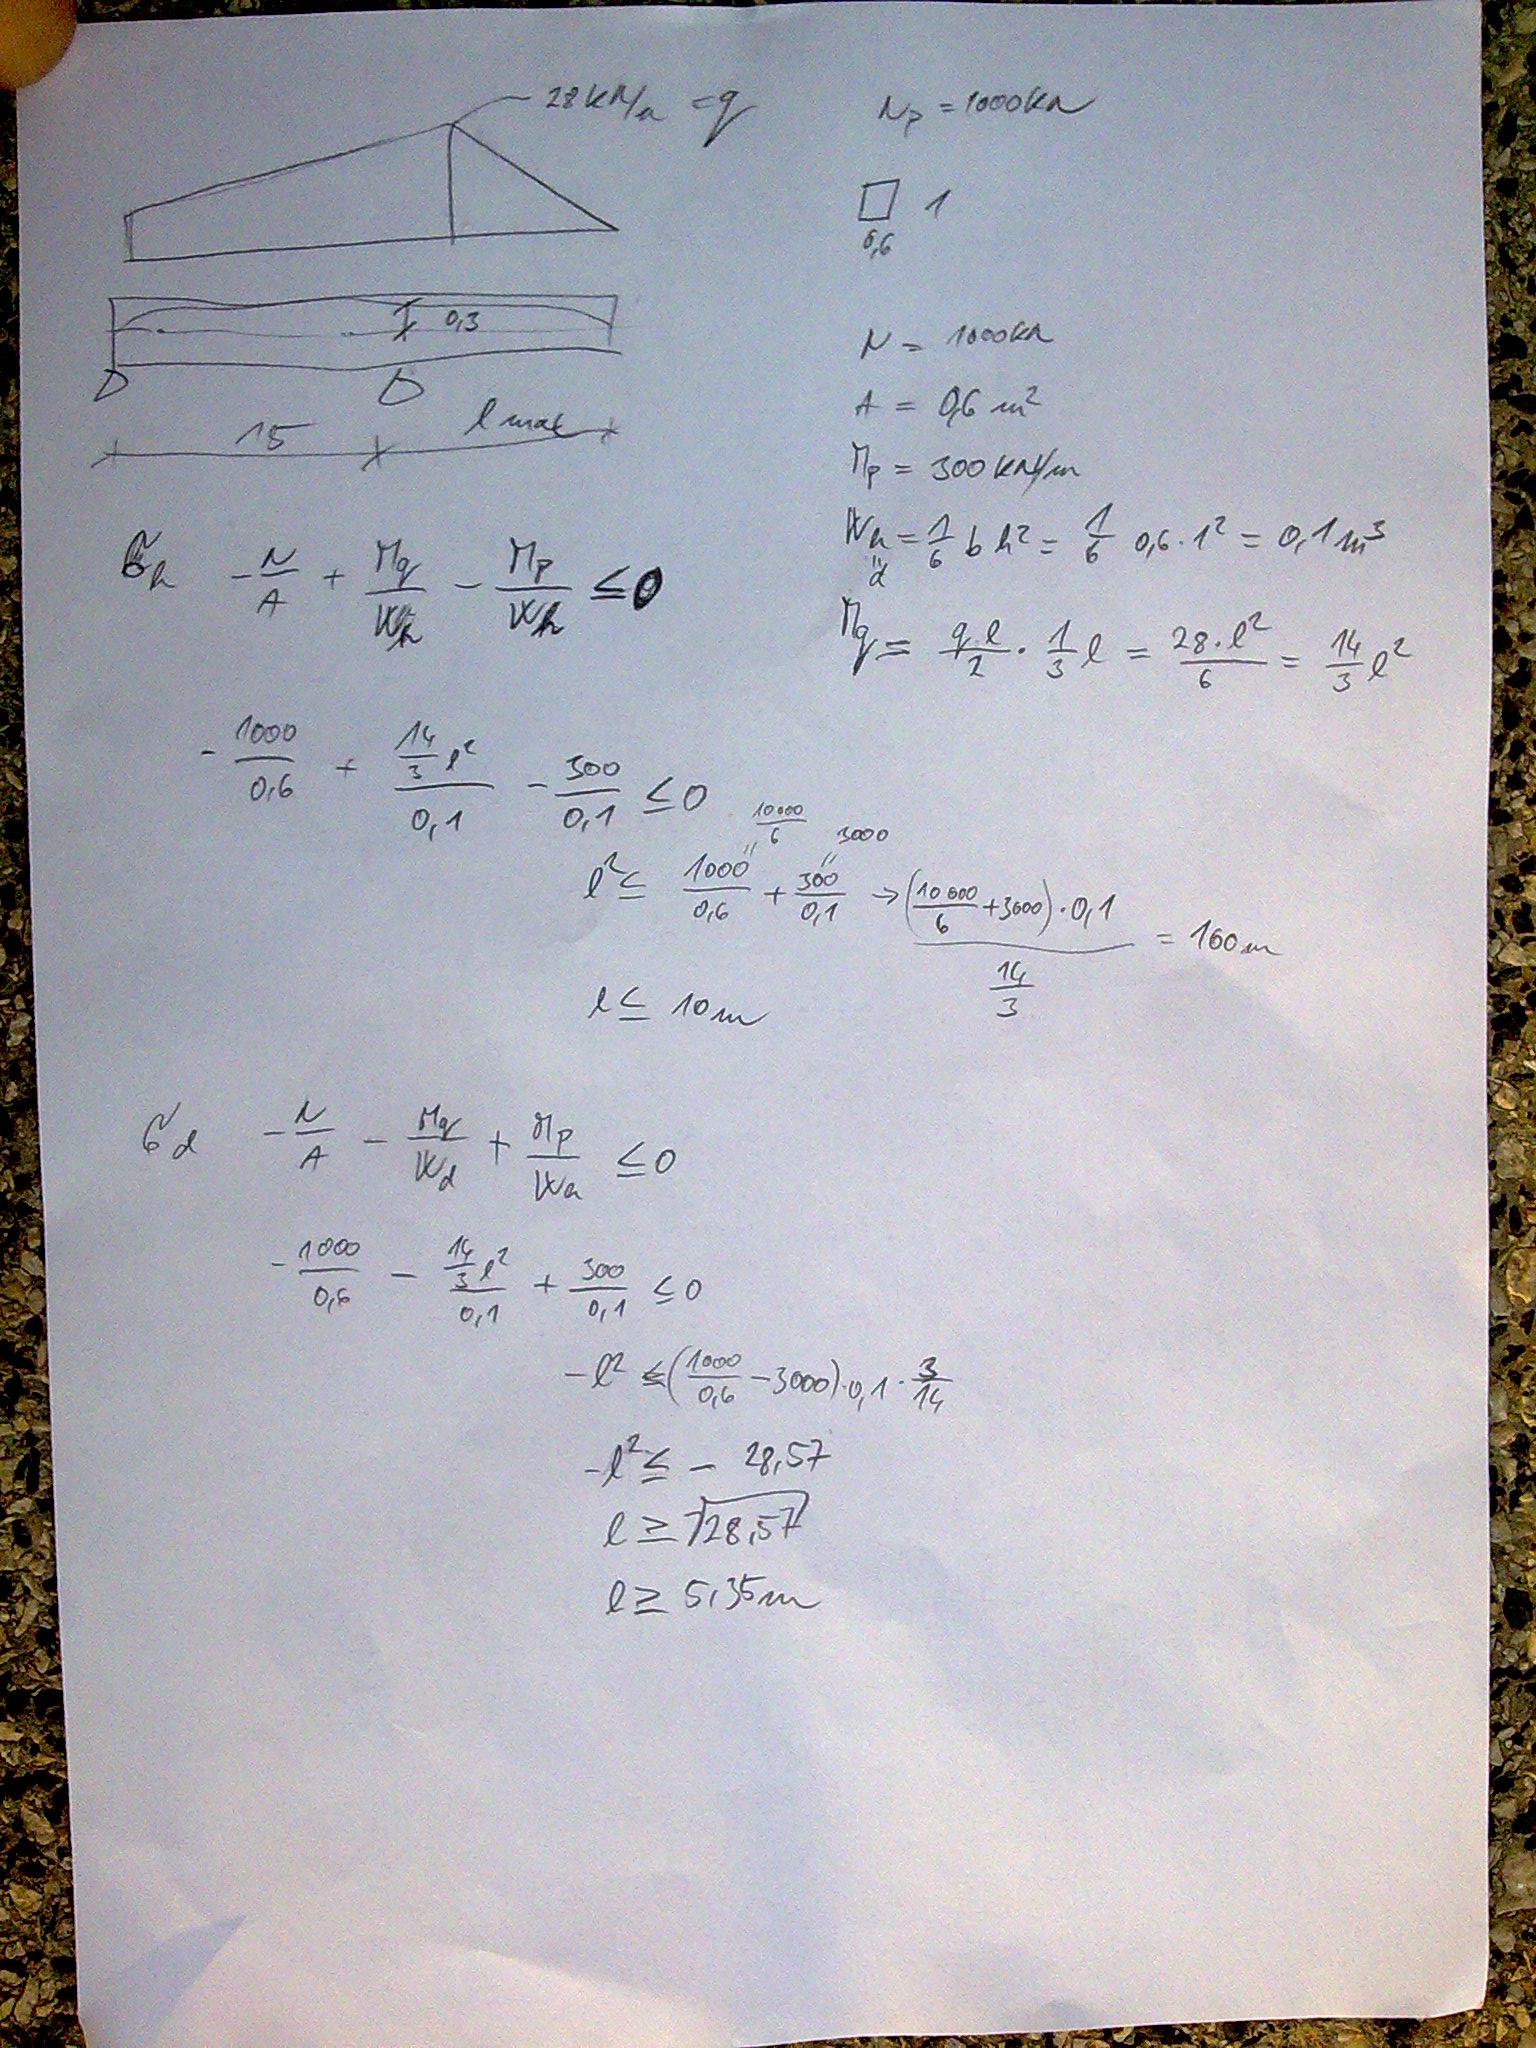 28 kN/m = q
Np = 1000 kN
1
0,6
0,3
15
l max
N = 1000 kN
A = 0,6 m²
Mp = 300 kN/m
Wh = 1/6 b h² = 1/6 0,6 · 1² = 0,1 m³
"
d
Mq = q·l/2 · 1/3 l = 28·l²/6 = 14/3 l²
σh - N/A + Mq/Wh - Mp/Wh ≤ 0
- 1000/0,6 + 14/3 l²/0,1 - 300/0,1 ≤ 0
10000/6 3000
" "
l² ≤ 1000/0,6 + 300/0,1 → (10000/6 + 3000) · 0,1 / 14/3 = 100 m
l ≤ 10 m
σd - N/A - Mq/Wd + Mp/Wd ≤ 0
- 1000/0,6 - 14/3 l²/0,1 + 300/0,1 ≤ 0
- l² ≤ (1000/0,6 - 3000) · 0,1 · 3/14
- l² ≤ - 28,57
l ≥ √28,57
l ≥ 5,35 m